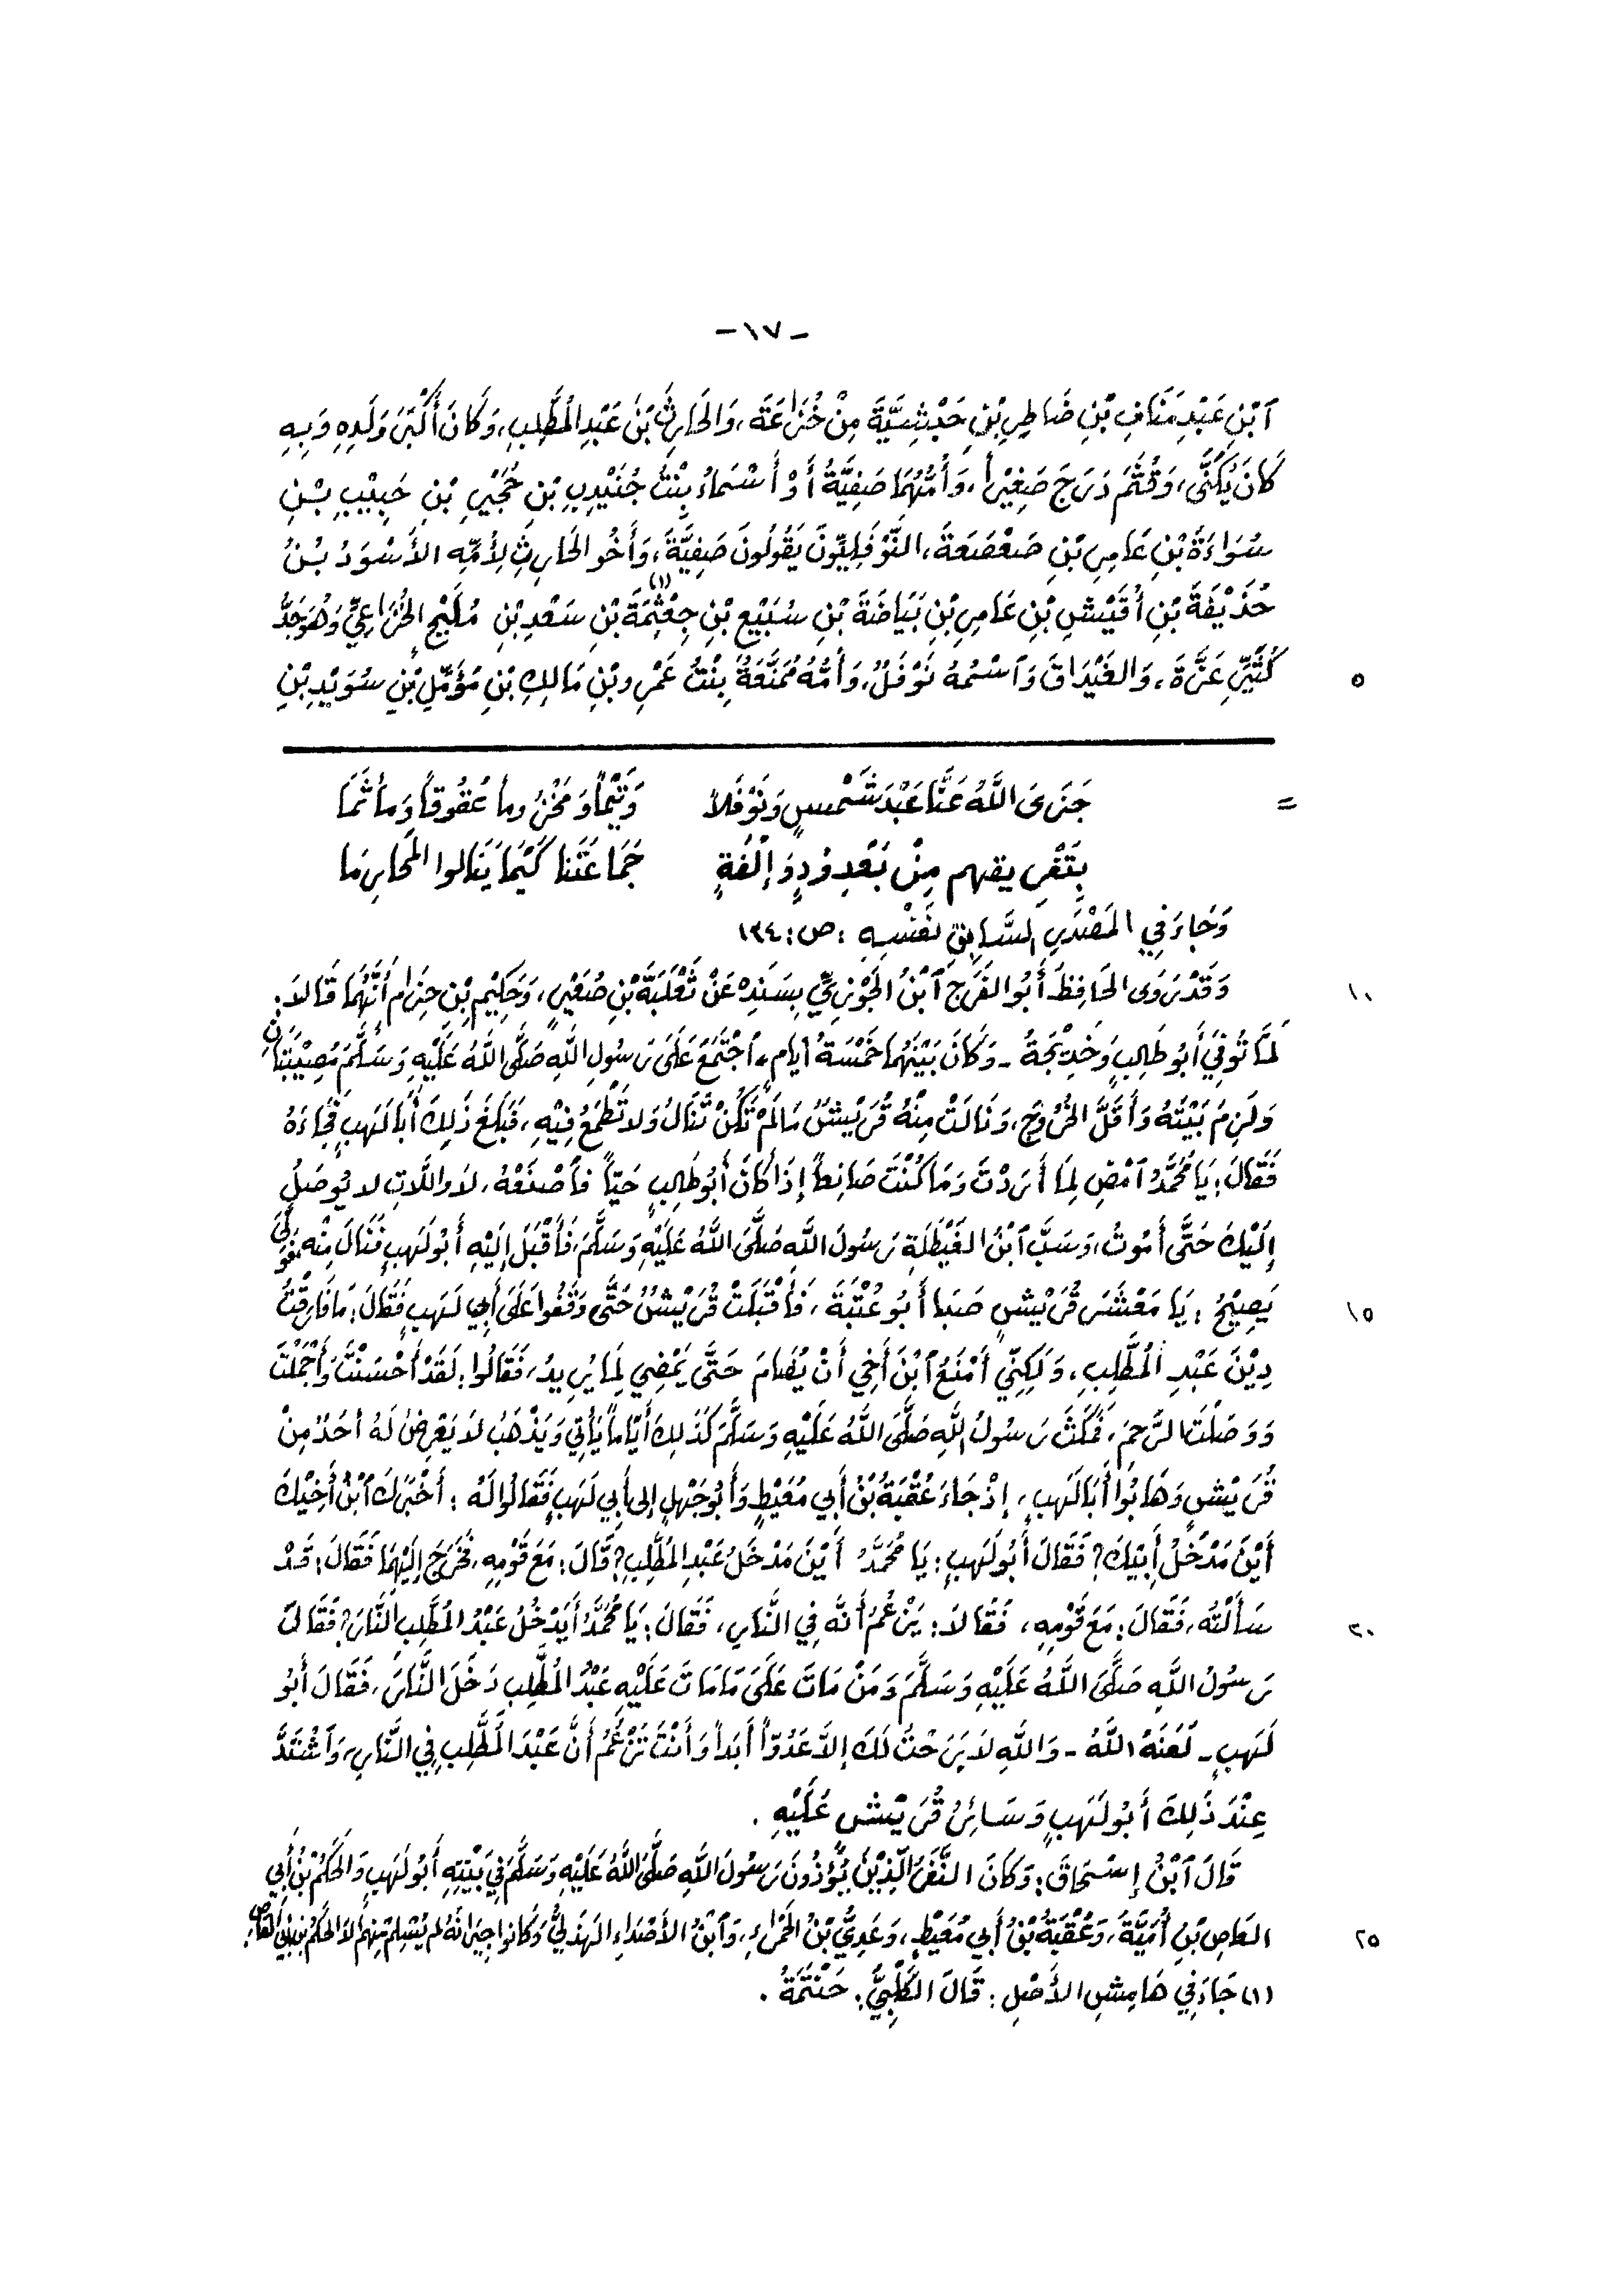 -١٧-
ٱبْنِ عَبْدِ مَنَافِ بْنِ ضَاطِرِ بْنِ حَبْشِيَّةَ مِنْ خُزَاعَةَ، وَالحَارِثَ بْنَ عَبْدِ المُطَّلِبِ، وَكَانَ أَكْبَرَ وَلَدِهِ وَبِهِ
كَانَ يُكَنَّى، وَقُثَمَ دَرَجَ صَغِيْراً، وَأُمُّهُمَا صَفِيَّةُ أَوْ أَسْمَاءُ بِنْتُ جُنَيْدِبِ بْنِ حُجَيْرِ بْنِ حَبِيْبِ بْنِ
سُوَاءَةَ بْنِ عَامِرِ بْنِ صَعْصَعَةَ، النَّوْفَلِيُّونَ يَقُولُونَ صَفِيَّةَ، وَأَخُو الحَارِثِ لِأُمِّهِ الأَسْوَدُ بْنُ
حُذَيْفَةَ بْنِ أُقَيْشِ بْنِ عَامِرِ بْنِ بَيَاضَةَ بْنِ سُبَيْعِ بْنِ جِعْثِمَةَ (١) بْنِ سَعْدِ بْنِ مُلَيْحٍ الخُزَاعِيُّ وَهُوَ جَدُّ
كُثَيِّرِ عَزَّةَ، وَالغَيْدَاقَ وَٱسْمُهُ نَوْفَلٌ، وَأُمُّهُ مُمَنَّعَةُ بِنْتُ عَمْرِو بْنِ مَالِكِ بْنِ مُؤَمِّلِ بْنِ سُوَيْدِ بْنِ
٥
= جَزَى اللَّهُ عَنَّا عَبْدَ شَمْسٍ وَنَوْفَلاً وَتَيْماً وَمَخْزُوماً عُقُوقاً وَمَأْثَمَا
بِتَفْرِيقِهِم مِنْ بَعْدِ وُدٍّ وَإِلْفَةٍ جَمَاعَتَنَا كَيْمَا يَنَالوا المَحَارِمَا
وَجَاءَ فِي المَصْدَرِ السَّابِقِ نَفْسِهِ : ص: ١٣٤
وَقَدْ رَوَى الحَافِظُ أَبُو الفَرَجِ ٱبْنُ الجَوْزِيِّ بِسَنَدِهِ عَنْ ثَعْلَبَةَ بْنِ صُعَيْرٍ، وَحَكِيْمِ بْنِ حِزَامٍ أَنَّهُمَا قَالاَ:
١٠
لَمَّا تُوُفِّيَ أَبُو طَالِبٍ وَخَدِيْجَةُ - وَكَانَ بَيْنَهُمَا خَمْسَةُ أيام - ٱجْتَمَعَ عَلَى رَسُولِ اللهِ صَلَّى اللهُ عَلَيْهِ وَسَلَّمَ مُصِيْبَتَانِ
وَلَزِمَ بَيْتَهُ وَأَقَلَّ الخُرُوجَ، وَنَالَتْ مِنْهُ قُرَيْشٌ مَالَمْ تَكُنْ تَنَالُ وَلاَ تَطْمَعُ فِيْهِ، فَبَلَغَ ذَلِكَ أَبَا لَهَبٍ فَجَاءَهُ
فَقَالَ: يَا مُحَمَّدُ ٱمْضِ لِمَا أَرَدْتَ وَمَا كُنْتَ صَانِعاً إِذْ كَانَ أَبُو طَالِبٍ حَيّاً فَٱصْنَعْهُ، لاَ واللَّاتِ لا يُوصَلُ
إِلَيْكَ حَتَّى أَمُوتُ، وَسَبَّ ٱبْنُ الغَيْطَلَةِ رَسُولَ اللهِ صَلَّى اللهُ عَلَيْهِ وَسَلَّمَ، فَأَقْبَلَ إِلَيْهِ أَبُو لَهَبٍ فَنَالَ مِنْهُ فَوَلَّى
يَصِيْحُ : يَا مَعْشَرَ قُرَيْشٍ صَبَا أَبُو عُتْبَةَ، فَأَقْبَلَتْ قُرَيْشٌ حَتَّى وَقَفُوا عَلَى أَبِي لَهَبٍ فَقَالَ: مَا فَارَقْتُ
١٥
دِيْنَ عَبْدِ المُطَّلِبِ، وَلَكِنِّي أَمْنَعُ ٱبْنَ أَخِي أَنْ يُضَامَ حَتَّى يَمْضِي لِمَا يُرِيدُ، فَقَالُوا: لَقَدْ أَحْسَنْتَ وَأَجْمَلْتَ
وَوَصَلْتَ الرَّحِمَ، فَمَكَثَ رَسُولُ اللهِ صَلَّى اللهُ عَلَيْهِ وَسَلَّمَ كَذَلِكَ أَيَّاماً يَأْتِي وَيَذْهَبُ لاَ يَعْرِضُ لَهُ أَحَدٌ مِنْ
قُرَيْشٍ وَهَابُوا أَبَا لَهَبٍ، إِذْ جَاءَ عُقْبَةُ بْنُ أَبِي مُعَيْطٍ وَأَبُو جَهْلٍ إِلى أَبِي لَهَبٍ فَقَالُوا لَهُ : أَخْبَرَكَ ٱبْنُ أَخِيْكَ
أَيْنَ مَدْخَلُ أَبِيْكَ؟ فَقَالَ أَبُو لَهَبٍ: يَا مُحَمَّدُ أَيْنَ مَدْخَلُ عَبْدِ المُطَّلِبِ؟ قَالَ: مَعَ قَوْمِهِ، فَخَرَجَ إِلَيْهِمَا فَقَالَ: قَدْ
سَأَلْتُهُ، فَقَالَ: مَعَ قَوْمِهِ، فَقَالاَ: يَزْعُمُ أَنَّهُ فِي النَّارِ، فَقَالَ: يَا مُحَمَّدُ أَيَدْخُلُ عَبْدُ المُطَّلِبِ النَّارَ؟ فَقَالَ
٢٠
رَسُولُ اللهِ صَلَّى اللهُ عَلَيْهِ وَسَلَّمَ وَمَنْ مَاتَ عَلَى مَا مَاتَ عَلَيْهِ عَبْدُ المُطَّلِبِ دَخَلَ النَّارَ، فَقَالَ أَبُو
لَهَبٍ - لَعَنَهُ اللَّهُ - وَاللهِ لاَ بَرِحْتُ لَكَ إِلاَّ عَدُوّاً أَبَداً وَأَنْتَ تَزْعُمُ أَنَّ عَبْدَ المُطَّلِبِ فِي النَّارِ، وَٱشْتَدَّ
عِنْدَ ذَلِكَ أَبُو لَهَبٍ وَسَائِرُ قُرَيْشٍ عَلَيْهِ .
قَالَ ٱبْنُ إِسْحَاقَ: وَكَانَ النَّفَرُ الَّذِيْنَ يُؤْذُونَ رَسُولَ اللهِ صَلَّى اللهُ عَلَيْهِ وَسَلَّمَ فِي بَيْتِهِ أَبُو لَهَبٍ وَالحَكَمُ بْنُ أَبِي
العَاصِ بْنِ أُمَيَّةَ، وَعُقْبَةُ بْنُ أَبِي مُعَيْطٍ، وَعَدِيُّ بْنُ الحَمْرَاءِ، وَٱبْنُ الأَصْدَاءِ الهَذَلِيُّ وَكَانُوا جِيْرَانَهُ لم يُسْلِمْ مِنْهِمْ إلاَّ الحَكَمُ بْنُ أَبِي العَاصِ.
٢٥
(١) جَاءَ فِي هَامِشِ الأَصْلِ : قَالَ الكَلْبِيُّ: خَنْثَمَةُ .